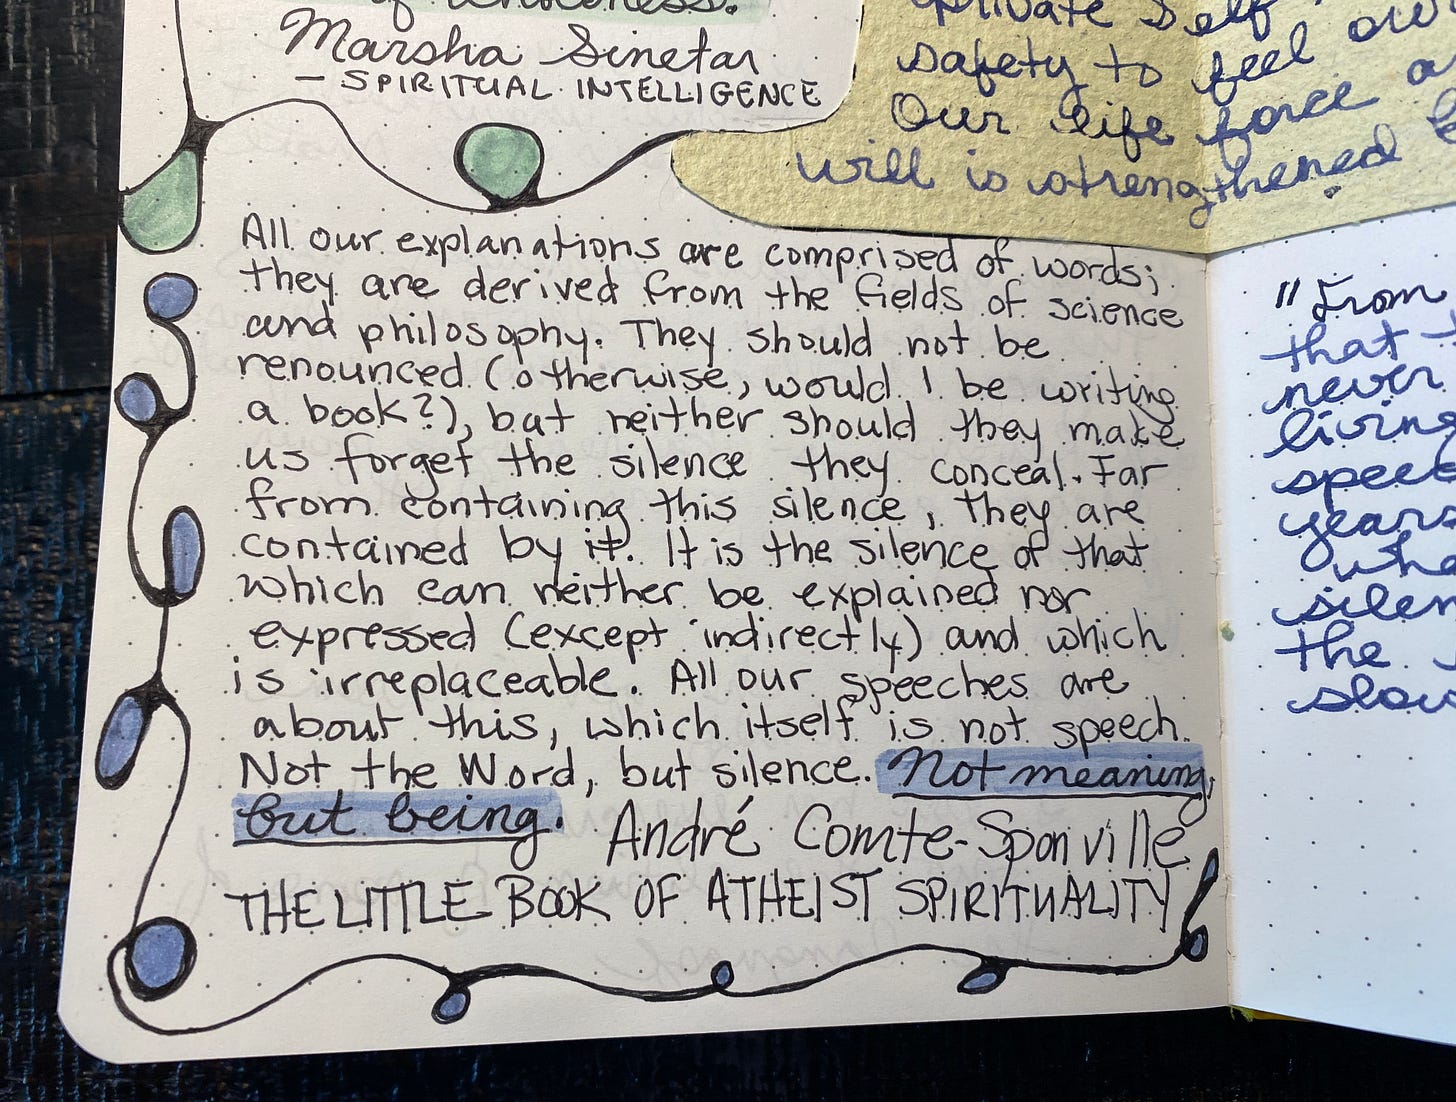 of wholeness.
Marsha Sinetar
— SPIRITUAL INTELLIGENCE
private self
safety to feel our
Our life force
will is strengthened
All our explanations are comprised of words;
they are derived from the fields of science
and philosophy. They should not be
renounced (otherwise, would I be writing
a book?), but neither should they make
us forget the silence they conceal. Far
from containing this silence, they are
contained by it. It is the silence of that
which can neither be explained nor
expressed (except indirectly) and which
is irreplaceable. All our speeches are
about this, which itself is not speech.
Not the Word, but silence. Not meaning,
but being. André Comte-Sponville
THE LITTLE BOOK OF ATHEIST SPIRITUALITY
"From
that
never
living
years
the